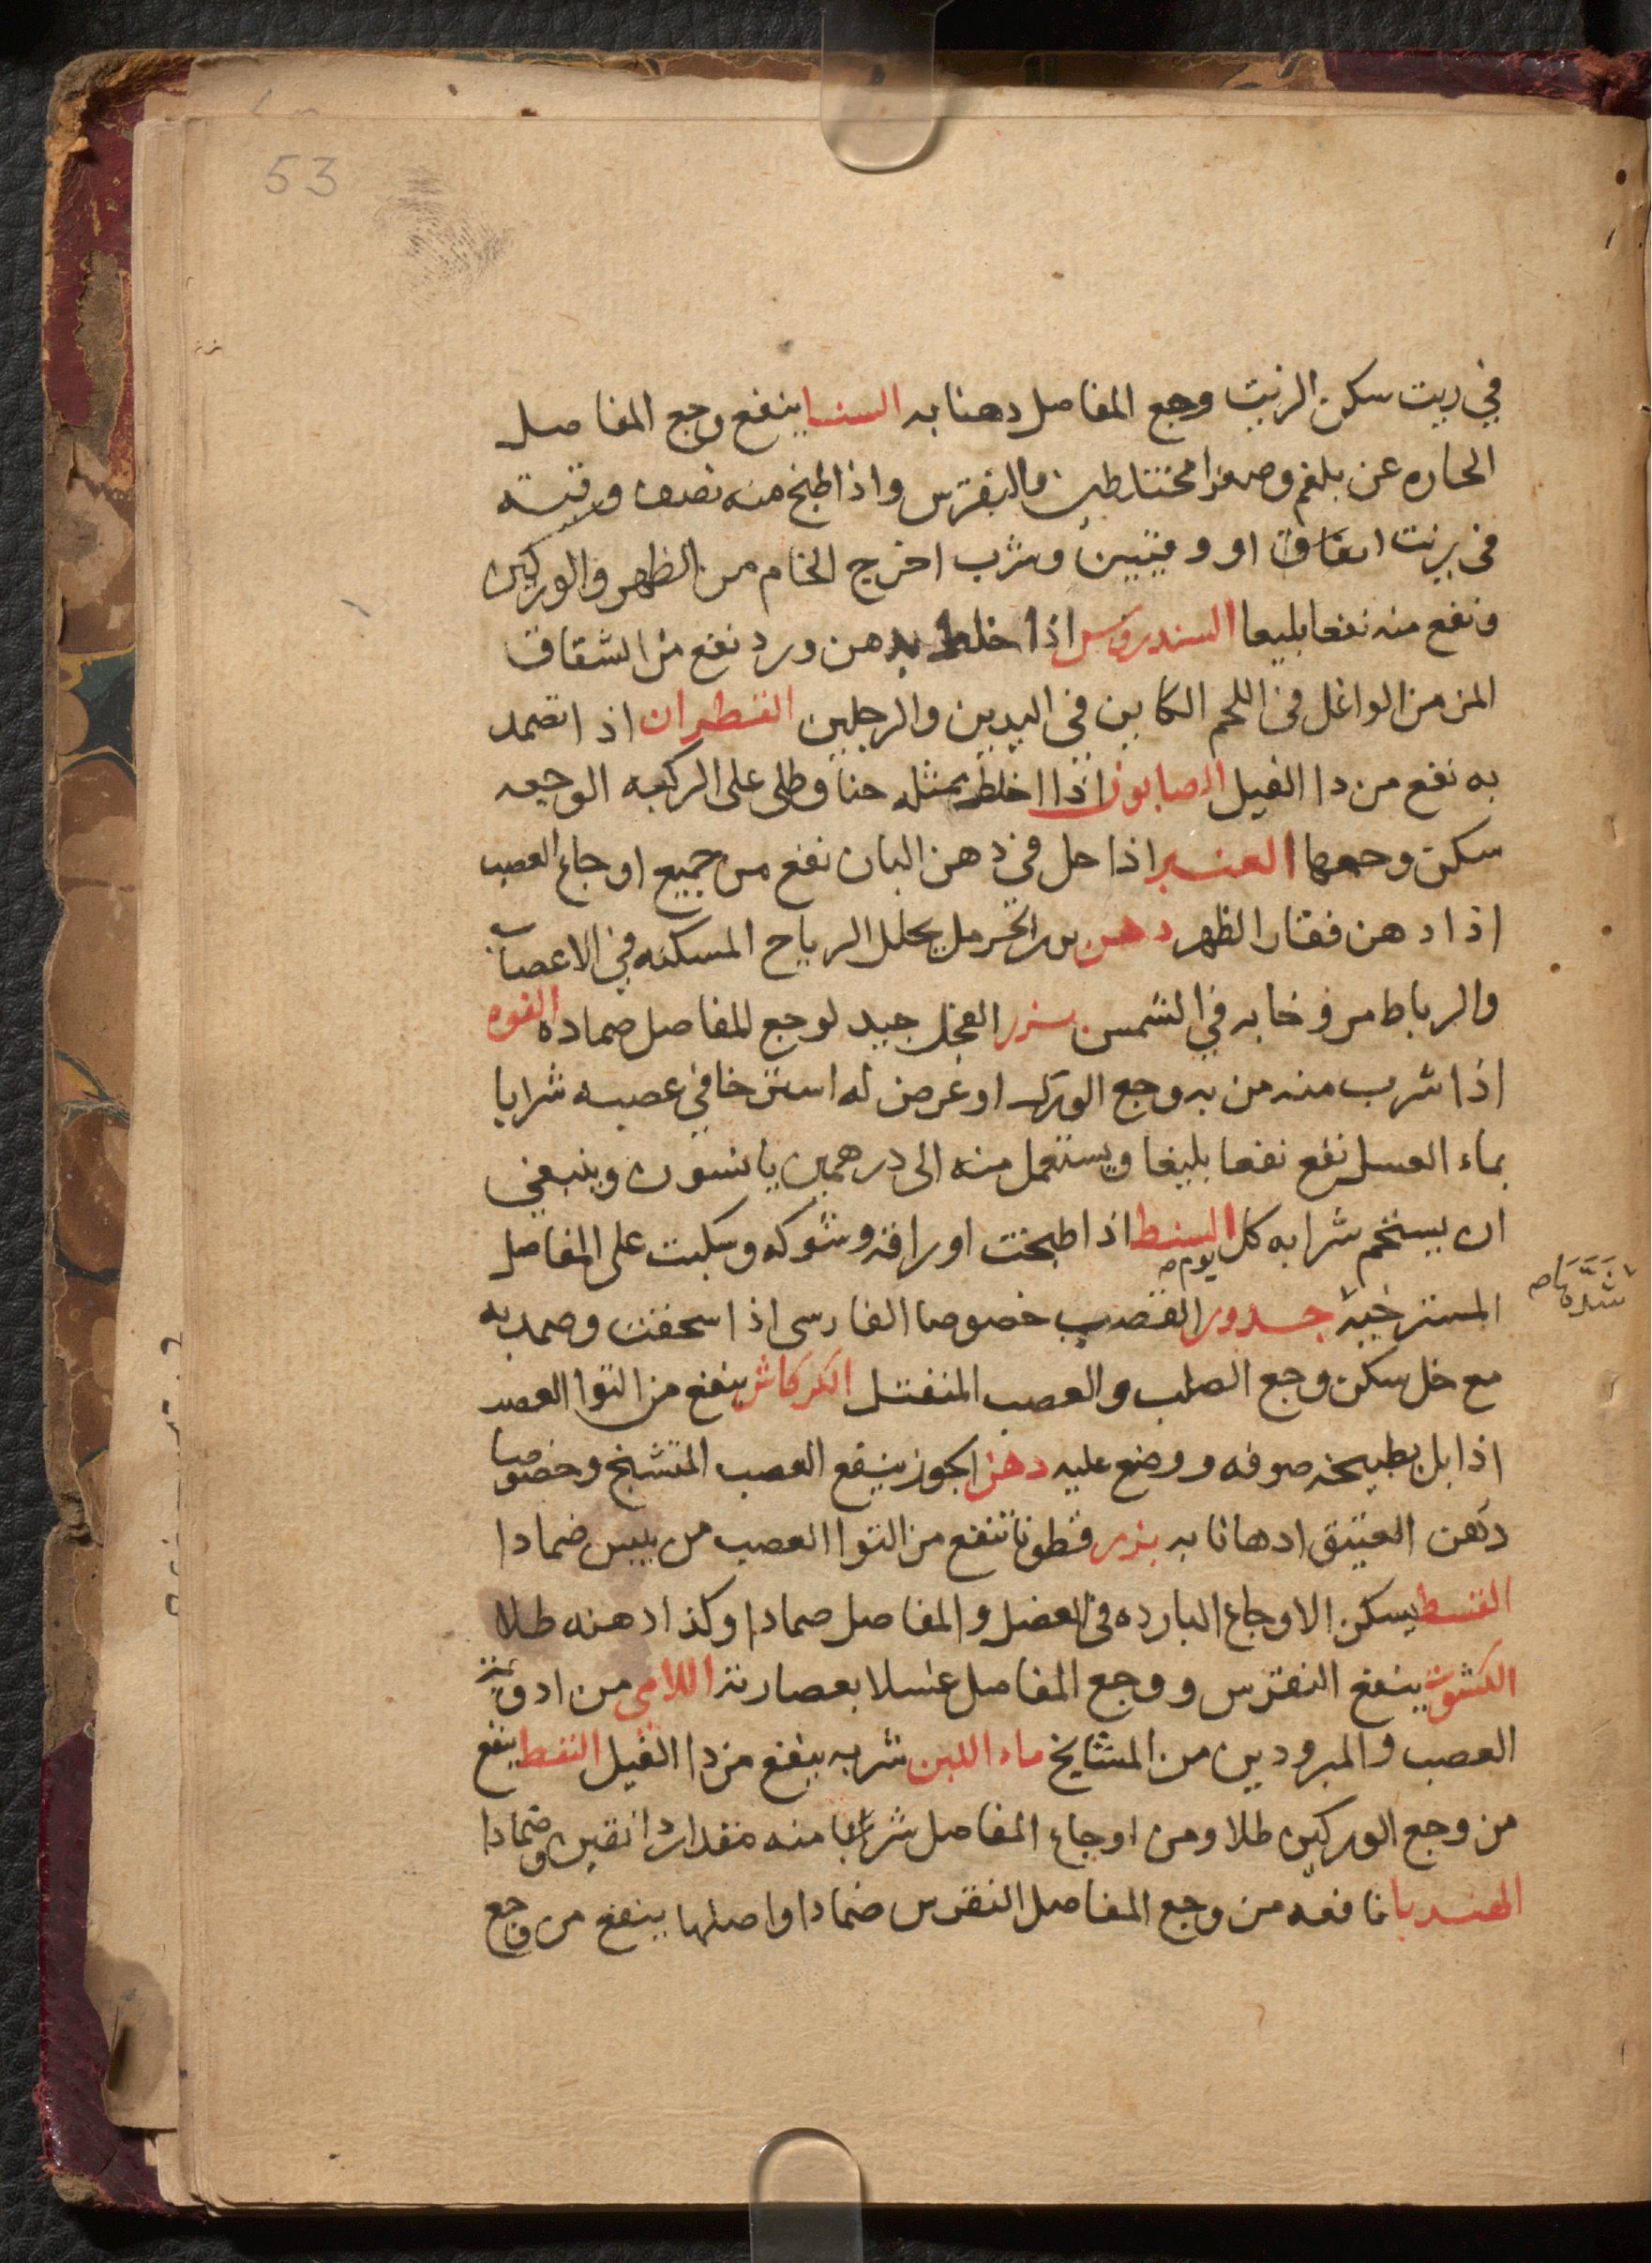 53
في زيت سكن الزيت وجع المفاصل دهنا به السنا ينفع وجع المفاصل
الحاره عن بلغم وصفرا مختلطين والنقرس واذا طبخ منه نصف وقيته
في زيت انفاق او وقيتين وشرب اخرج الخام من الظهر والوركين
ونفع منه نفعا بليغا السندروس اذا خلط بدهن ورد نفع من الشقاق
المزمن الواغل في اللحم الكاين في اليدين والرجلين القطران اذا تضمد
به نفع من دا الفيل الصابون اذا اخلط بمثله حنا وطلى على الركبه الوجعه
سكن وجعها العنبر اذا حل في دهن البان نفع من جميع اوجاع العصب
اذا دهن فقار الظهر دهن بزر الحرمل يحلل الرياح المسكنه في الاعصاب
والرباط مروخا به في الشمس بزر الفجل جيد لوجع المفاصل ضماده الفوه
اذا شرب منه من به وجع الورك او عرض له استرخا في عصبه شرابا
بماء العسل نفع نفعا بليغا ويستعمل منه الى درهمين يانسون وينبغي
ان يستحم شرابه كل يوم السنط اذا طبخت اوراقه وشوكه وسكبت على المفاصل
المسترخيه جدور القصب خصوصا الفارسى اذا سحقت وضمد به
شدها
مع خل سكن وجع الصلب والعصب المنفتل الكركاش ينفع من التوا العصب
اذا بل بطبيخه صوفه ووضع عليه دهن الجوز ينفع العصب المتشنج وخصوصا
دهن العتيق ادهانا به بزر قطونا تنفع من التوا العصب من يبس ضمادا
القسط يسكن الاوجاع البارده في العضل والمفاصل ضمادا وكذا دهنه طلا
الكشوت ينفع النقرس ووجع المفاصل غسلا بعصارته اللامى من ادوية
العصب والمبرودين من المشايخ ماء اللبن شربه ينفع من دا الفيل النفط ينفع
من وجع الوركين طلا ومن اوجاع المفاصل شربا منه مقدار دانقين وضمادا
الهندبا نافعه من وجع المفاصل النقرس ضمادا واصلها ينفع من وجع